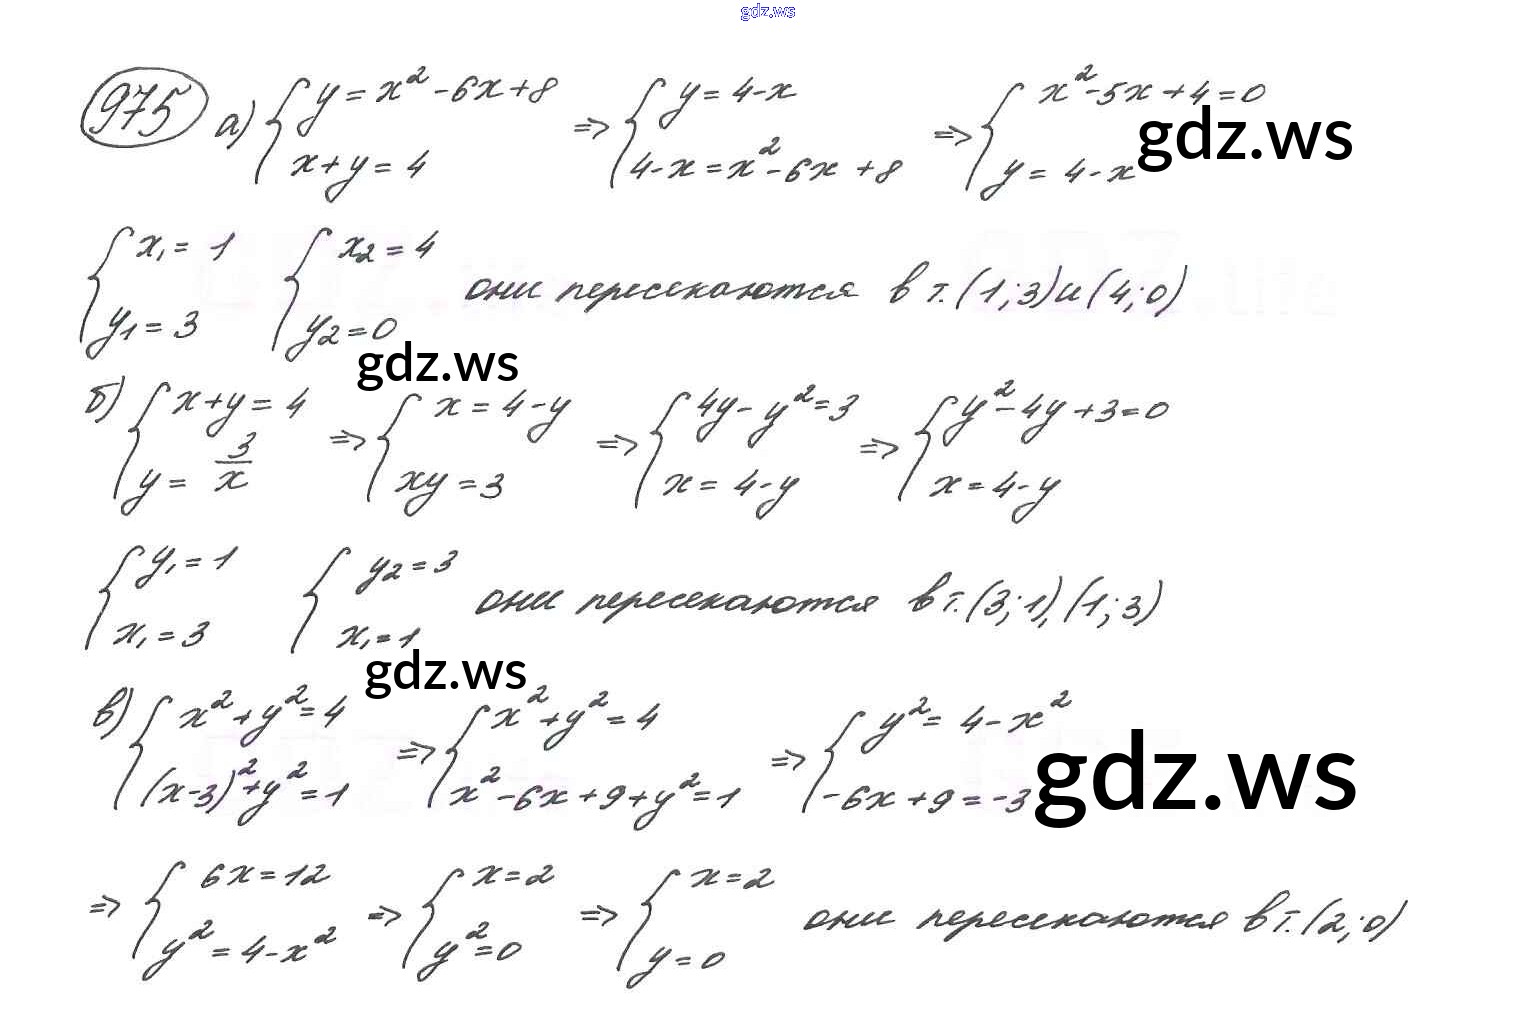 gdz.ws
975 а) { y = x² - 6x + 8 ; x + y = 4 => { y = 4 - x ; 4 - x = x² - 6x + 8 => { x² - 5x + 4 = 0 ; y = 4 - x
gdz.ws
{ x₁ = 1 ; y₁ = 3 { x₂ = 4 ; y₂ = 0 они пересекаются в т. (1; 3) и (4; 0)
gdz.ws
б) { x + y = 4 ; y = 3/x => { x = 4 - y ; xy = 3 => { 4y - y² = 3 ; x = 4 - y => { y² - 4y + 3 = 0 ; x = 4 - y
{ y₁ = 1 ; x₁ = 3 { y₂ = 3 ; x₁ = 1 они пересекаются в т. (3; 1), (1; 3)
gdz.ws
в) { x² + y² = 4 ; (x - 3)² + y² = 1 => { x² + y² = 4 ; x² - 6x + 9 + y² = 1 => { y² = 4 - x² ; -6x + 9 = -3
gdz.ws
=> { 6x = 12 ; y² = 4 - x² => { x = 2 ; y² = 0 => { x = 2 ; y = 0 они пересекаются в т. (2; 0)